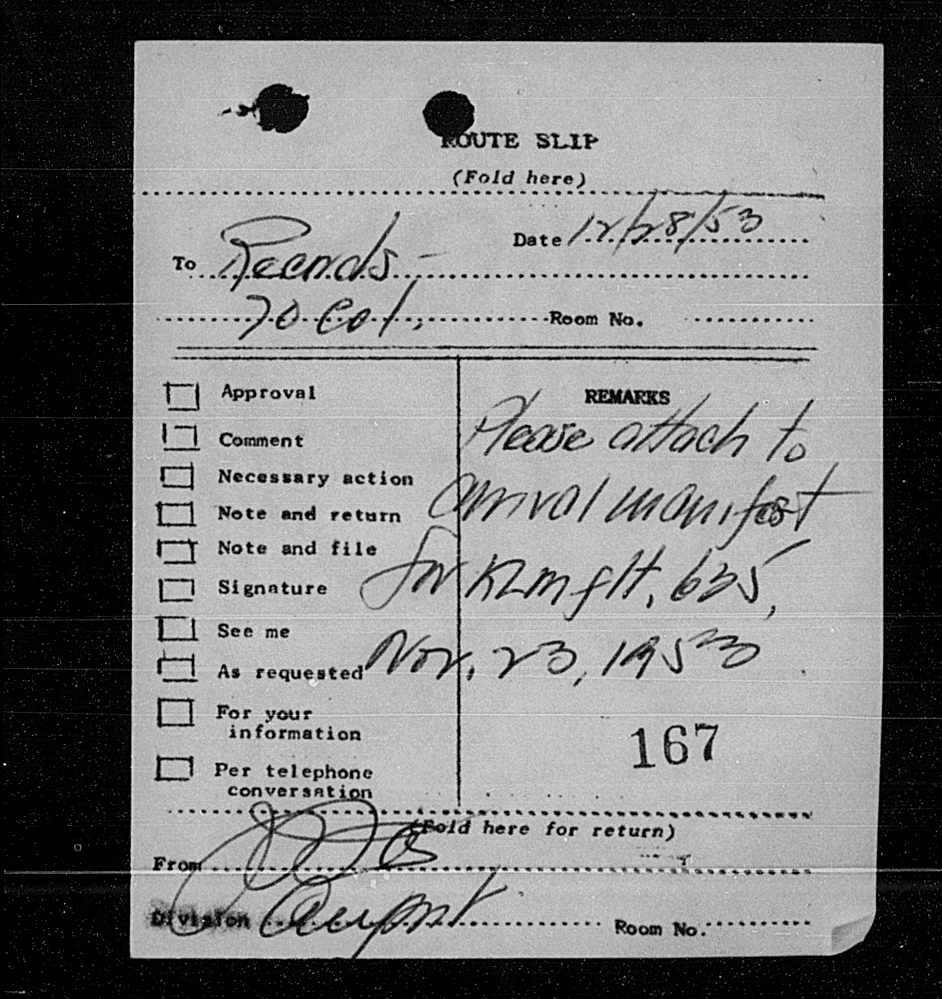 ROUTE SLIP
(Fold here)
Date 12/28/53
To Records -
70 Col. Room No.
Approval
Comment
Necessary action
Note and return
Note and file
Signature
See me
As requested
For your
information
Per telephone
conversation
REMARKS
Please attach to
arrival manifest
for KLM flt. 635,
Nov. 23, 1953
167
(Fold here for return)
From
Division Airport Room No.